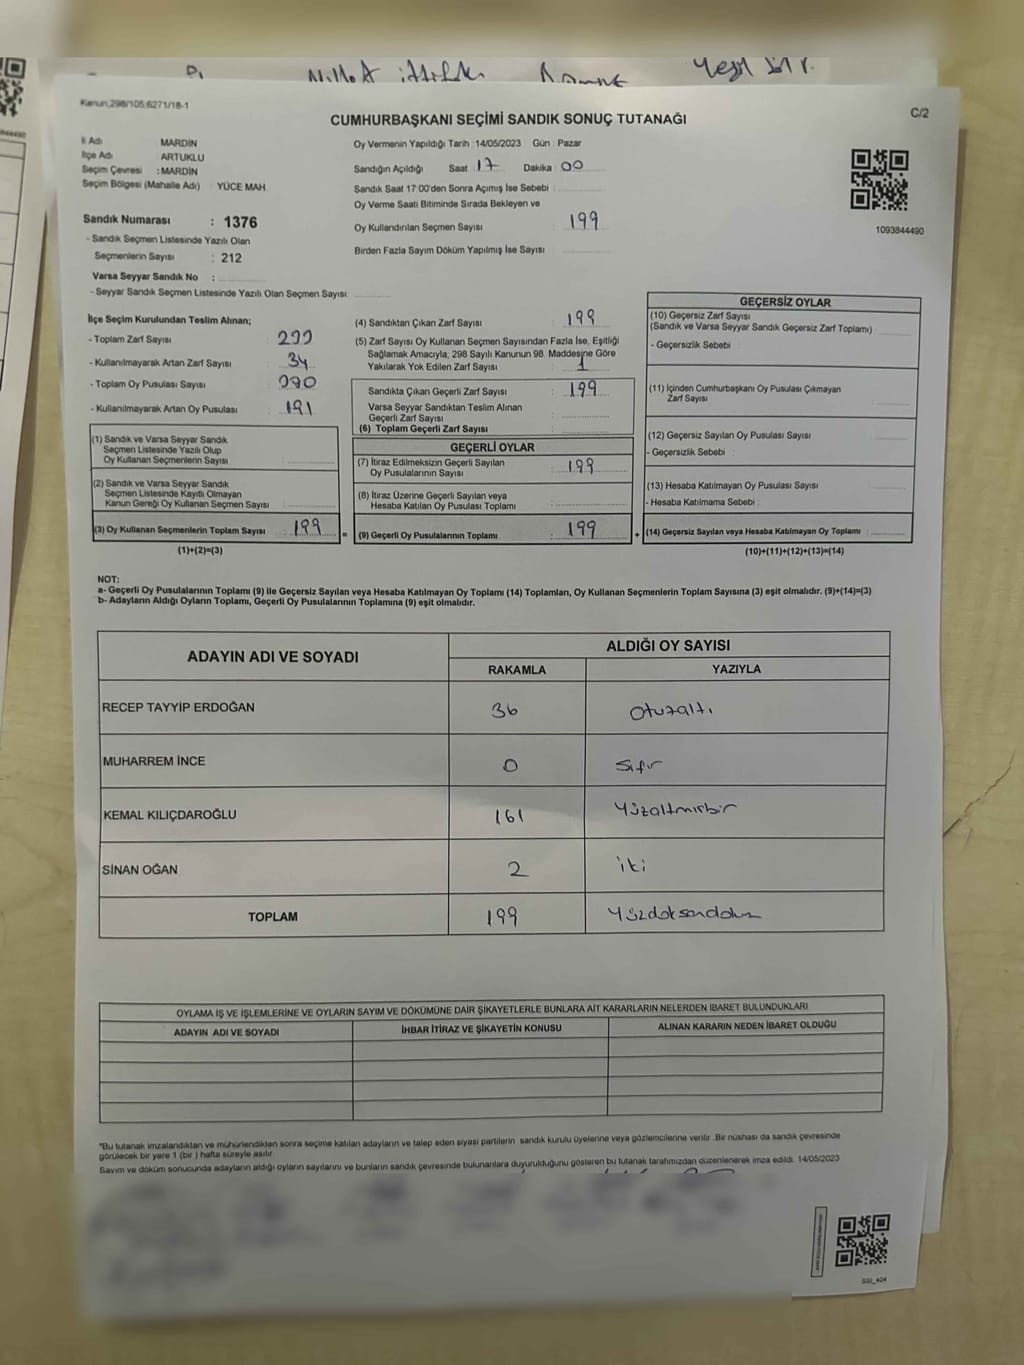 Millet ittifakı
Yeşil Sol P.
Kanun;298/105;6271/18-1
C/2
CUMHURBAŞKANI SEÇİMİ SANDIK SONUÇ TUTANAĞI
İl Adı MARDİN
İlçe Adı ARTUKLU
Seçim Çevresi : MARDİN
Seçim Bölgesi (Mahalle Adı) : YÜCE MAH.
Sandık Numarası : 1376
- Sandık Seçmen Listesinde Yazılı Olan
Seçmenlerin Sayısı : 212
Varsa Seyyar Sandık No :
- Seyyar Sandık Seçmen Listesinde Yazılı Olan Seçmen Sayısı:
Oy Vermenin Yapıldığı Tarih : 14/05/2023 Gün : Pazar
Sandığın Açıldığı Saat 17 Dakika 00
Sandık Saat 17:00'den Sonra Açımış İse Sebebi :
Oy Verme Saati Bitiminde Sırada Bekleyen ve
Oy Kullandırılan Seçmen Sayısı : 199
Birden Fazla Sayım Döküm Yapılmış İse Sayısı :
1093844490
İlçe Seçim Kurulundan Teslim Alınan;
- Toplam Zarf Sayısı :
- Kullanılmayarak Artan Zarf Sayısı : 34
- Toplam Oy Pusulası Sayısı :
- Kullanılmayarak Artan Oy Pusulası : 191
(1) Sandık ve Varsa Seyyar Sandık
Seçmen Listesinde Yazılı Olup
Oy Kullanan Seçmenlerin Sayısı :
(2) Sandık ve Varsa Seyyar Sandık
Seçmen Listesinde Kayıtlı Olmayan
Kanun Gereği Oy Kullanan Seçmen Sayısı :
(3) Oy Kullanan Seçmenlerin Toplam Sayısı : 199
(1)+(2)=(3)
(4) Sandıktan Çıkan Zarf Sayısı : 199
(5) Zarf Sayısı Oy Kullanan Seçmen Sayısından Fazla İse, Eşitliği
Sağlamak Amacıyla, 298 Sayılı Kanunun 98. Maddesine Göre
Yakılarak Yok Edilen Zarf Sayısı : 1
Sandıkta Çıkan Geçerli Zarf Sayısı : 199
Varsa Seyyar Sandıktan Teslim Alınan
Geçerli Zarf Sayısı :
(6) Toplam Geçerli Zarf Sayısı :
GEÇERLİ OYLAR
(7) İtiraz Edilmeksizin Geçerli Sayılan
Oy Pusulalarının Sayısı : 199
(8) İtiraz Üzerine Geçerli Sayılan veya
Hesaba Katılan Oy Pusulası Toplamı :
= (9) Geçerli Oy Pusulalarının Toplamı : 199
GEÇERSİZ OYLAR
(10) Geçersiz Zarf Sayısı
(Sandık ve Varsa Seyyar Sandık Geçersiz Zarf Toplamı) :
- Geçersizlik Sebebi :
(11) İçinden Cumhurbaşkanı Oy Pusulası Çıkmayan
Zarf Sayısı :
(12) Geçersiz Sayılan Oy Pusulası Sayısı :
- Geçersizlik Sebebi :
(13) Hesaba Katılmayan Oy Pusulası Sayısı :
- Hesaba Katılmama Sebebi :
+ (14) Geçersiz Sayılan veya Hesaba Katılmayan Oy Toplamı :
(10)+(11)+(12)+(13)=(14)
NOT:
a- Geçerli Oy Pusulalarının Toplamı (9) ile Geçersiz Sayılan veya Hesaba Katılmayan Oy Toplamı (14) Toplamları, Oy Kullanan Seçmenlerin Toplam Sayısına (3) eşit olmalıdır. (9)+(14)=(3)
b- Adayların Aldığı Oyların Toplamı, Geçerli Oy Pusulalarının Toplamına (9) eşit olmalıdır.
ADAYIN ADI VE SOYADI ALDIĞI OY SAYISI
RAKAMLA YAZIYLA
RECEP TAYYİP ERDOĞAN 36 Otuzaltı
MUHARREM İNCE 0 Sıfır
KEMAL KILIÇDAROĞLU 161 Yüzaltmışbir
SİNAN OĞAN 2 iki
TOPLAM 199 Yüzdoksandokuz
OYLAMA İŞ VE İŞLEMLERİNE VE OYLARIN SAYIM VE DÖKÜMÜNE DAİR ŞİKAYETLERLE BUNLARA AİT KARARLARIN NELERDEN İBARET BULUNDUKLARI
ADAYIN ADI VE SOYADI İHBAR İTİRAZ VE ŞİKAYETİN KONUSU ALINAN KARARIN NEDEN İBARET OLDUĞU
*Bu tutanak imzalandıktan ve mühürlendikten sonra seçime katılan adayların ve talep eden siyasi partilerin sandık kurulu üyelerine veya gözlemcilerine verilir. Bir nüshası da sandık çevresinde
görülecek bir yere 1 (bir ) hafta süreyle asılır.
Sayım ve döküm sonucunda adayların aldığı oyların sayılarını ve bunların sandık çevresinde bulunanlara duyurulduğunu gösteren bu tutanak tarafımızdan düzenlenerek imza edildi. 14/05/2023
SSI_404